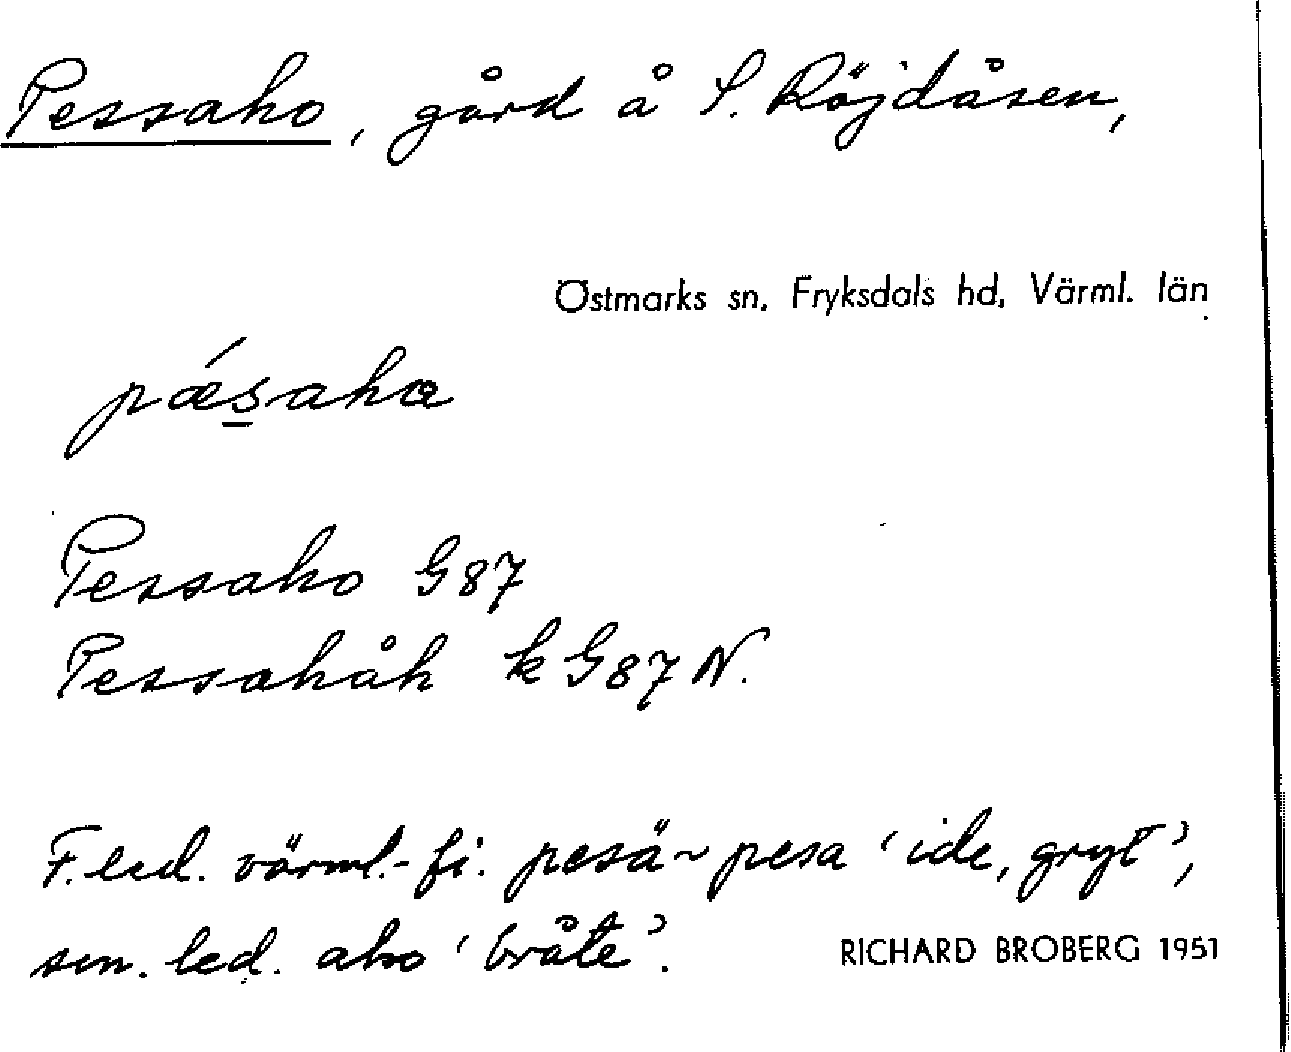 Pessaho, gård å S. Röjdåsen,
Östmarks sn, Fryksdals hd, Värml. län
pǽs̲aha
Pessaho G87
Pessahåh k G87 N.
F.led. värml.-fi. pesä ~ pesa 'ide, gryt',
sen. led. aho 'bråte'.
RICHARD BROBERG 1951